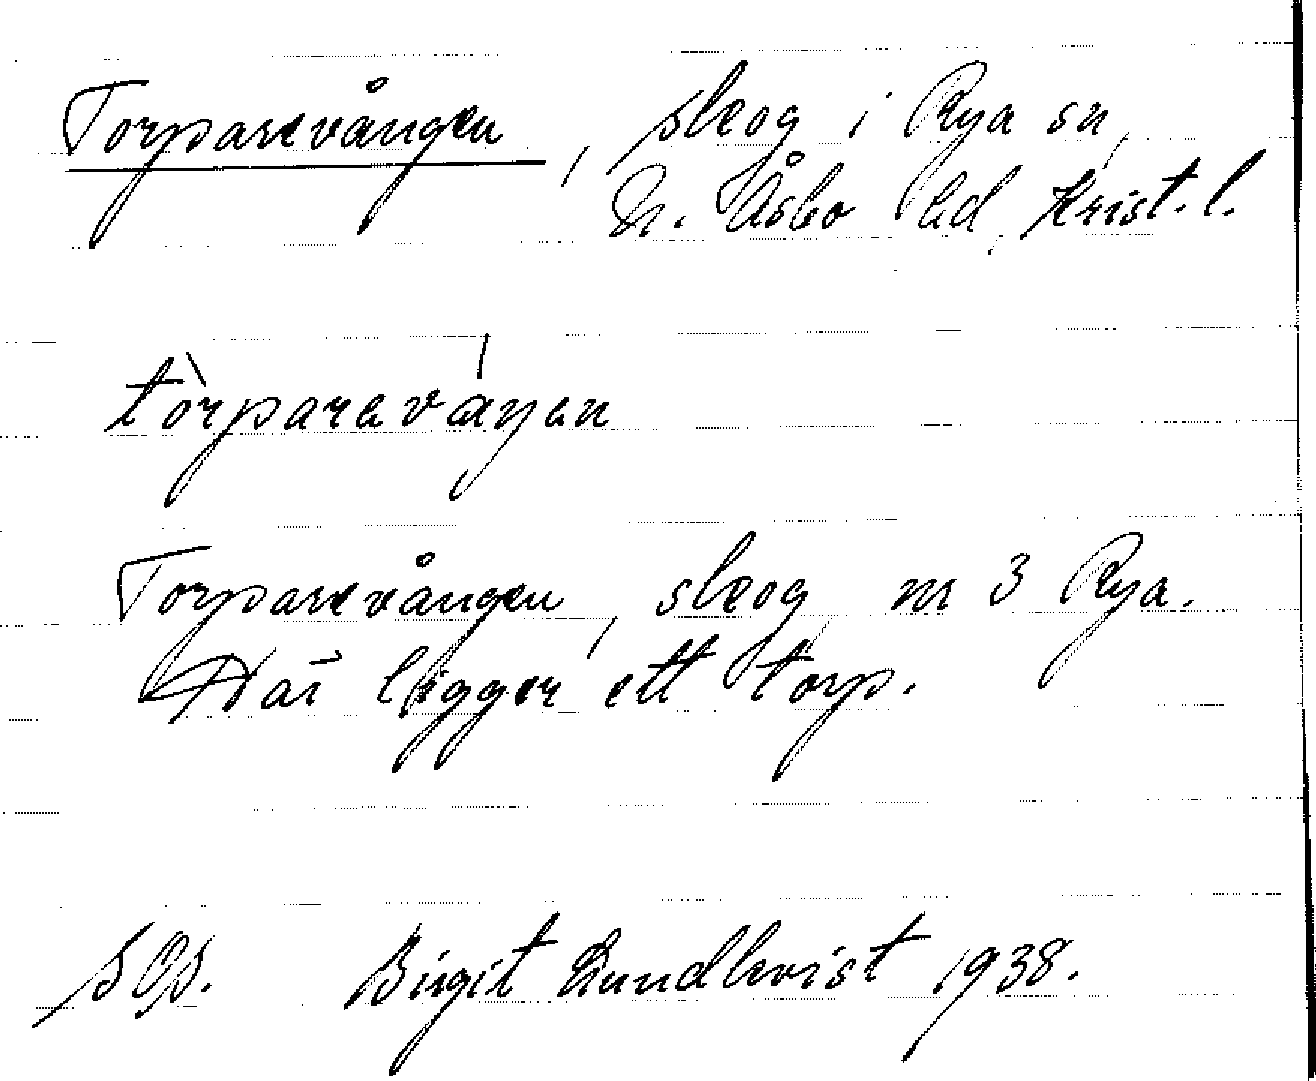 Torparevången, skog i Rya sn,
N. Åsbo hd, Krist. l.
tòrparaváŋen
Torparevången, skog nr 3 Rya.
Här ligger ett torp.
Birgit Lundkvist 1938.